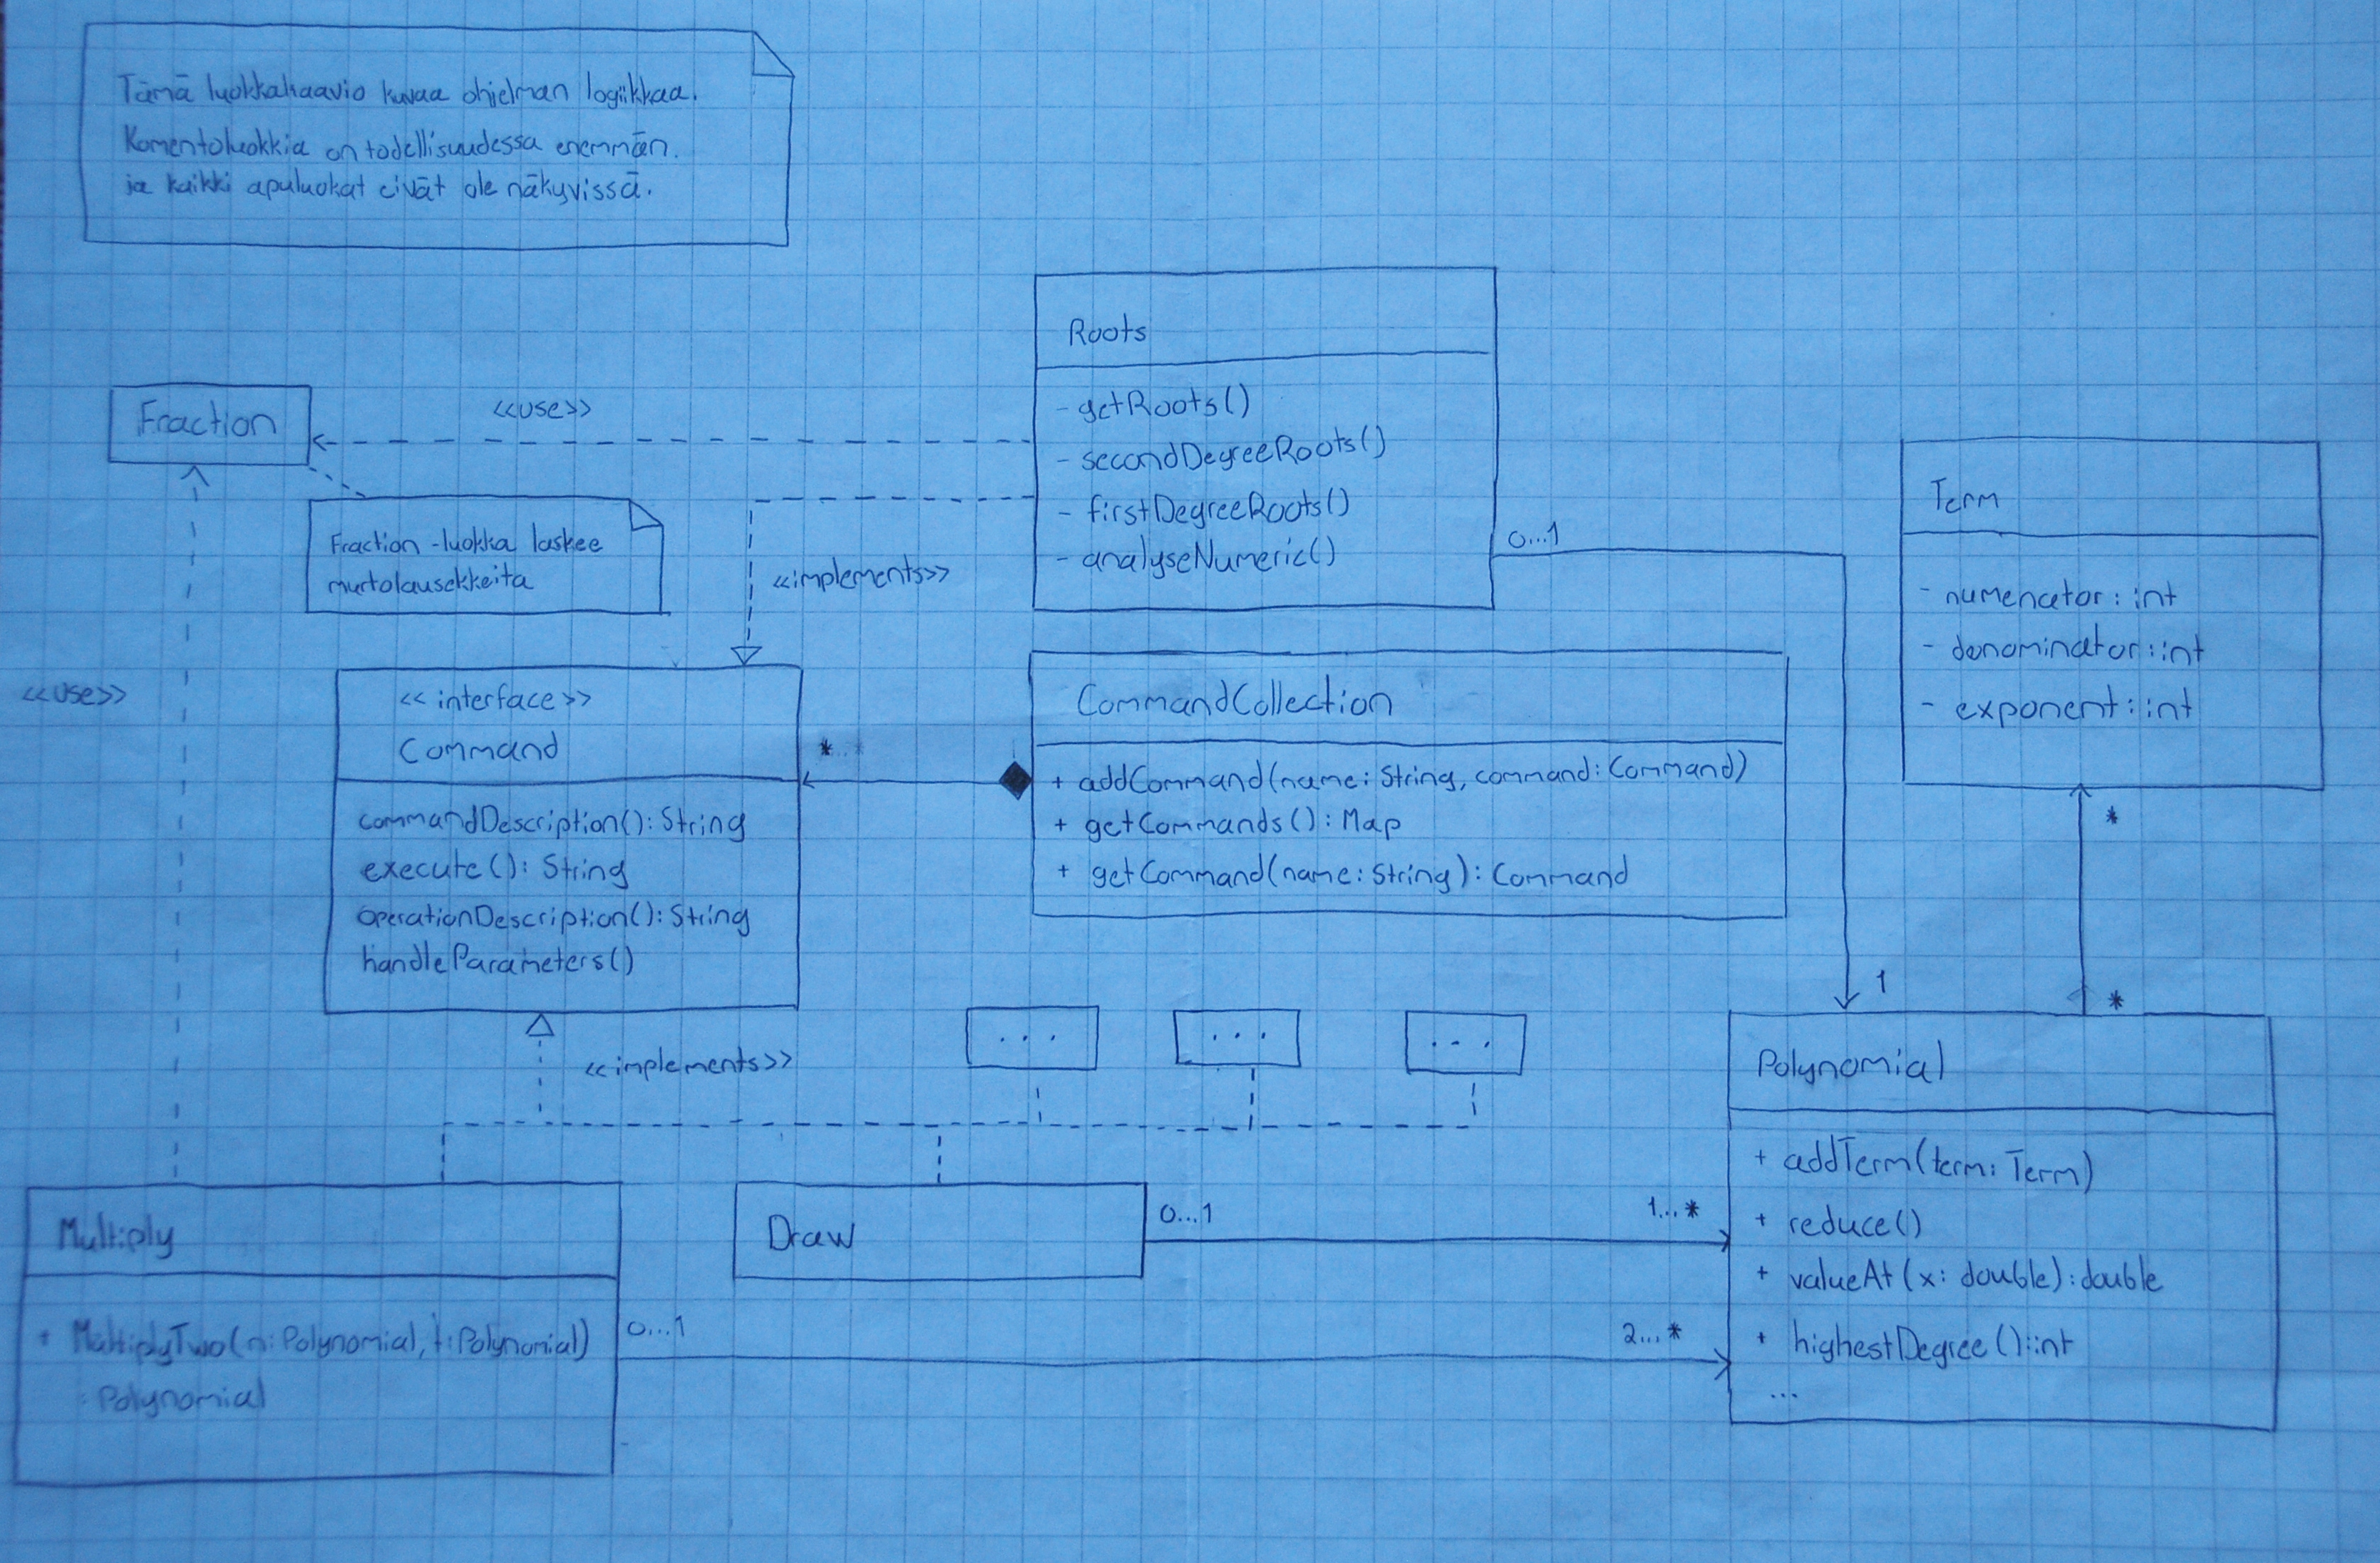 Tämä luokkakaavio kuvaa ohjelman logiikkaa.
Komentoluokkia on todellisuudessa enemmän.
ja kaikki apuluokat eivät ole näkyvissä.
Roots
- getRoots()
- secondDegreeRoots()
- firstDegreeRoots()
- analyseNumeric()
Fraction
<<use>>
Fraction -luokka laskee
murtolausekkeita
<<implements>>
0...1
Term
- numerator: int
- denominator: int
- exponent: int
<<use>>
<<interface>>
Command
commandDescription(): String
execute(): String
operationDescription(): String
handleParameters()
*
CommandCollection
+ addCommand(name: String, command: Command)
+ getCommands(): Map
+ getCommand(name: String): Command
*
1
*
<<implements>>
...
...
...
Polynomial
+ addTerm(term: Term)
+ reduce()
+ valueAt(x: double): double
+ highestDegree(): int
...
Multiply
+ MultiplyTwo(n: Polynomial, t: Polynomial)
: Polynomial
Draw
0...1
1...*
0...1
2...*